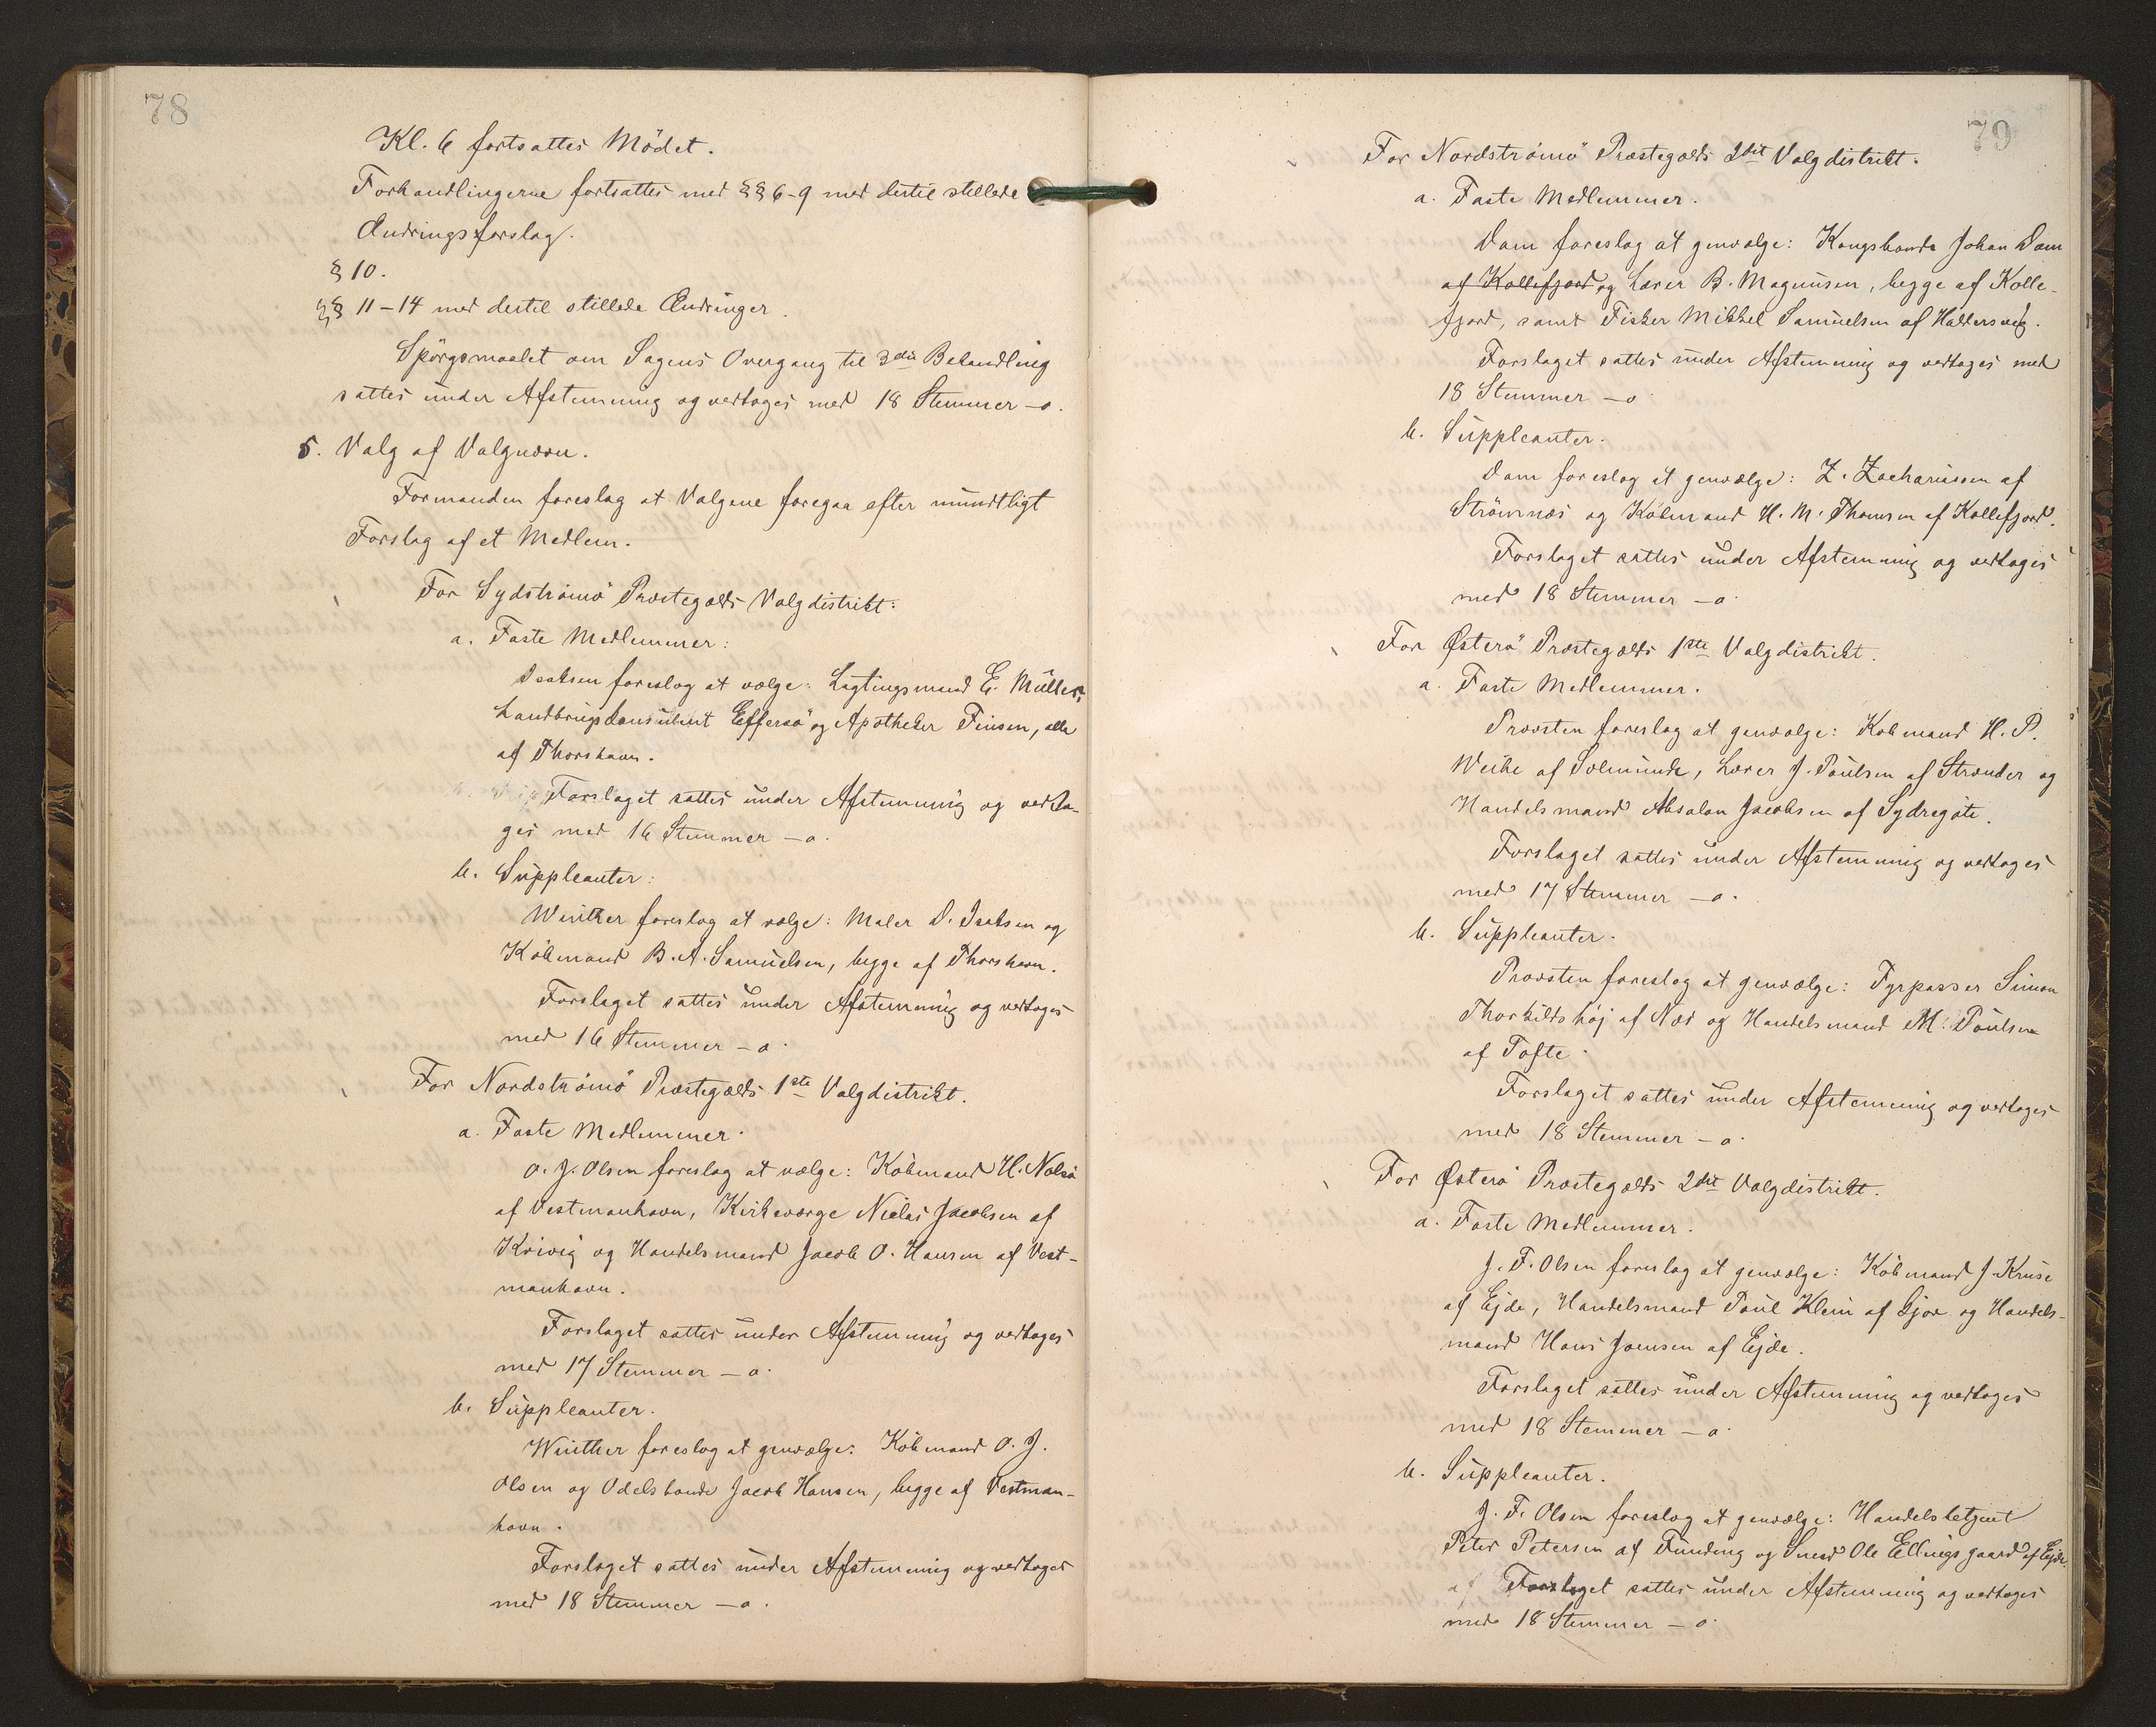 78
Kl. 6 fortsattes Mödet.
Forhandlingerne fortsattes med §§ 6-9 med dertil stillede
Ændringsforslag.
§ 10.
§§ 11-14 med dertil stillede Ændringer.
Spörgsmaalet om Sagens Overgang til 3die Behandling
sattes under Afstemning og vedtoges med 18 Stemmer -o.
5. Valg af Valgnævn.
Formanden foreslog at Valgene foregaa efter mundtligt
Forslag af et Medlem.
For Sydströmö Præstegælds Valgdistrikt:
a. Faste Medlemmer:
Isaksen foreslog at vælge: Lagtingsmand E. Müller,
Landbrugskonsulent Effersö og Apotheker Finsen, alle
af Thorshavn.
Forslaget sattes under Afstemning og vedto-
ges med 16 Stemmer -o.
b. Suppleanter:
Winther foreslog at vælge: Maler D. Isaksen og
Köbmand B. A. Samuelsen, begge af Thorshavn.
Forslaget sattes under Afstemning og vedtoges
med 16 Stemmer -o.
For Nordströmö Præstegælds 1ste Valgdistrikt.
a. Faste Medlemmer.
O. J. Olsen foreslog at vælge: Köbmand H. Nolsö
af Vestmanhavn, Kirkeværge Niclas Jacobsen af
Kvivig og Handelsmand Jacob O. Hansen af Vest-
manhavn.
Forslaget sattes under Afstemning og vedtoges
med 17 Stemmer -o.
b. Suppleanter.
Winther foreslog at genvælge: Köbmand O. J.
Olsen og Odelsbonde Jacob Hansen, begge af Vestman-
havn.
Forslaget sattes under Afstemning og vedtoges
med 18 Stemmer -o.
79
For Nordströmö Præstegælds 2det Valgdistrikt.
a. Faste Medlemmer.
Dam foreslog at genvælge: Kongsbonde Johan Dam
af Kollefjord og Lærer B. Magnusen, begge af Kolle-
fjord, samt Fisker Mikkel Samuelsen af Haldersvig.
Forslaget sattes under Afstemning og vedtoges med
18 Stemmer -o
b. Suppleanter.
Dam foreslog at genvælge: Z. Zachariasen af
Strömnæs og Köbmand H. M. Thomsen af Kollefjord.
Forslaget sattes under Afstemning og vedtoges
med 18 Stemmer -o.
For Österö Præstegælds 1ste Valgdistrikt.
a. Faste Medlemmer.
Provsten foreslog at genvælge: Köbmand H. P.
Weihe af Solmunde, Lærer J. Poulsen af Strænder og
Handelsmand Absalon Jacobsen af Sydregöte.
Forslaget sattes under Afstemning og vedtoges
med 17 Stemmer -o.
b. Suppleanter.
Provsten foreslog at genvælge: Fyrpasser Simon
Thorkildshöj af Næs og Handelsmand M. Poulsen
af Tofte.
Forslaget sattes under Afstemning og vedtoges
med 18 Stemmer -o.
For Österö Præstegælds 2det Valgdistrikt.
a. Faste Medlemmer.
J. F. Olsen foreslog at genvælge: Köbmand J. Kruse
af Ejde, Handelsmand Poul Klein af Gjov og Handels-
mand Hans Joensen af Ejde.
Forslaget sattes under Afstemning og vedtoges
med 18 Stemmer -o.
b. Suppleanter.
J. F. Olsen foreslog at genvælge: Handelsbetjent
Peter Petersen af Funding og Smed Ole Ellingsgaard af Ejde.
Forslaget sattes under Afstemning og vedtoges
med 18 Stemmer -o.